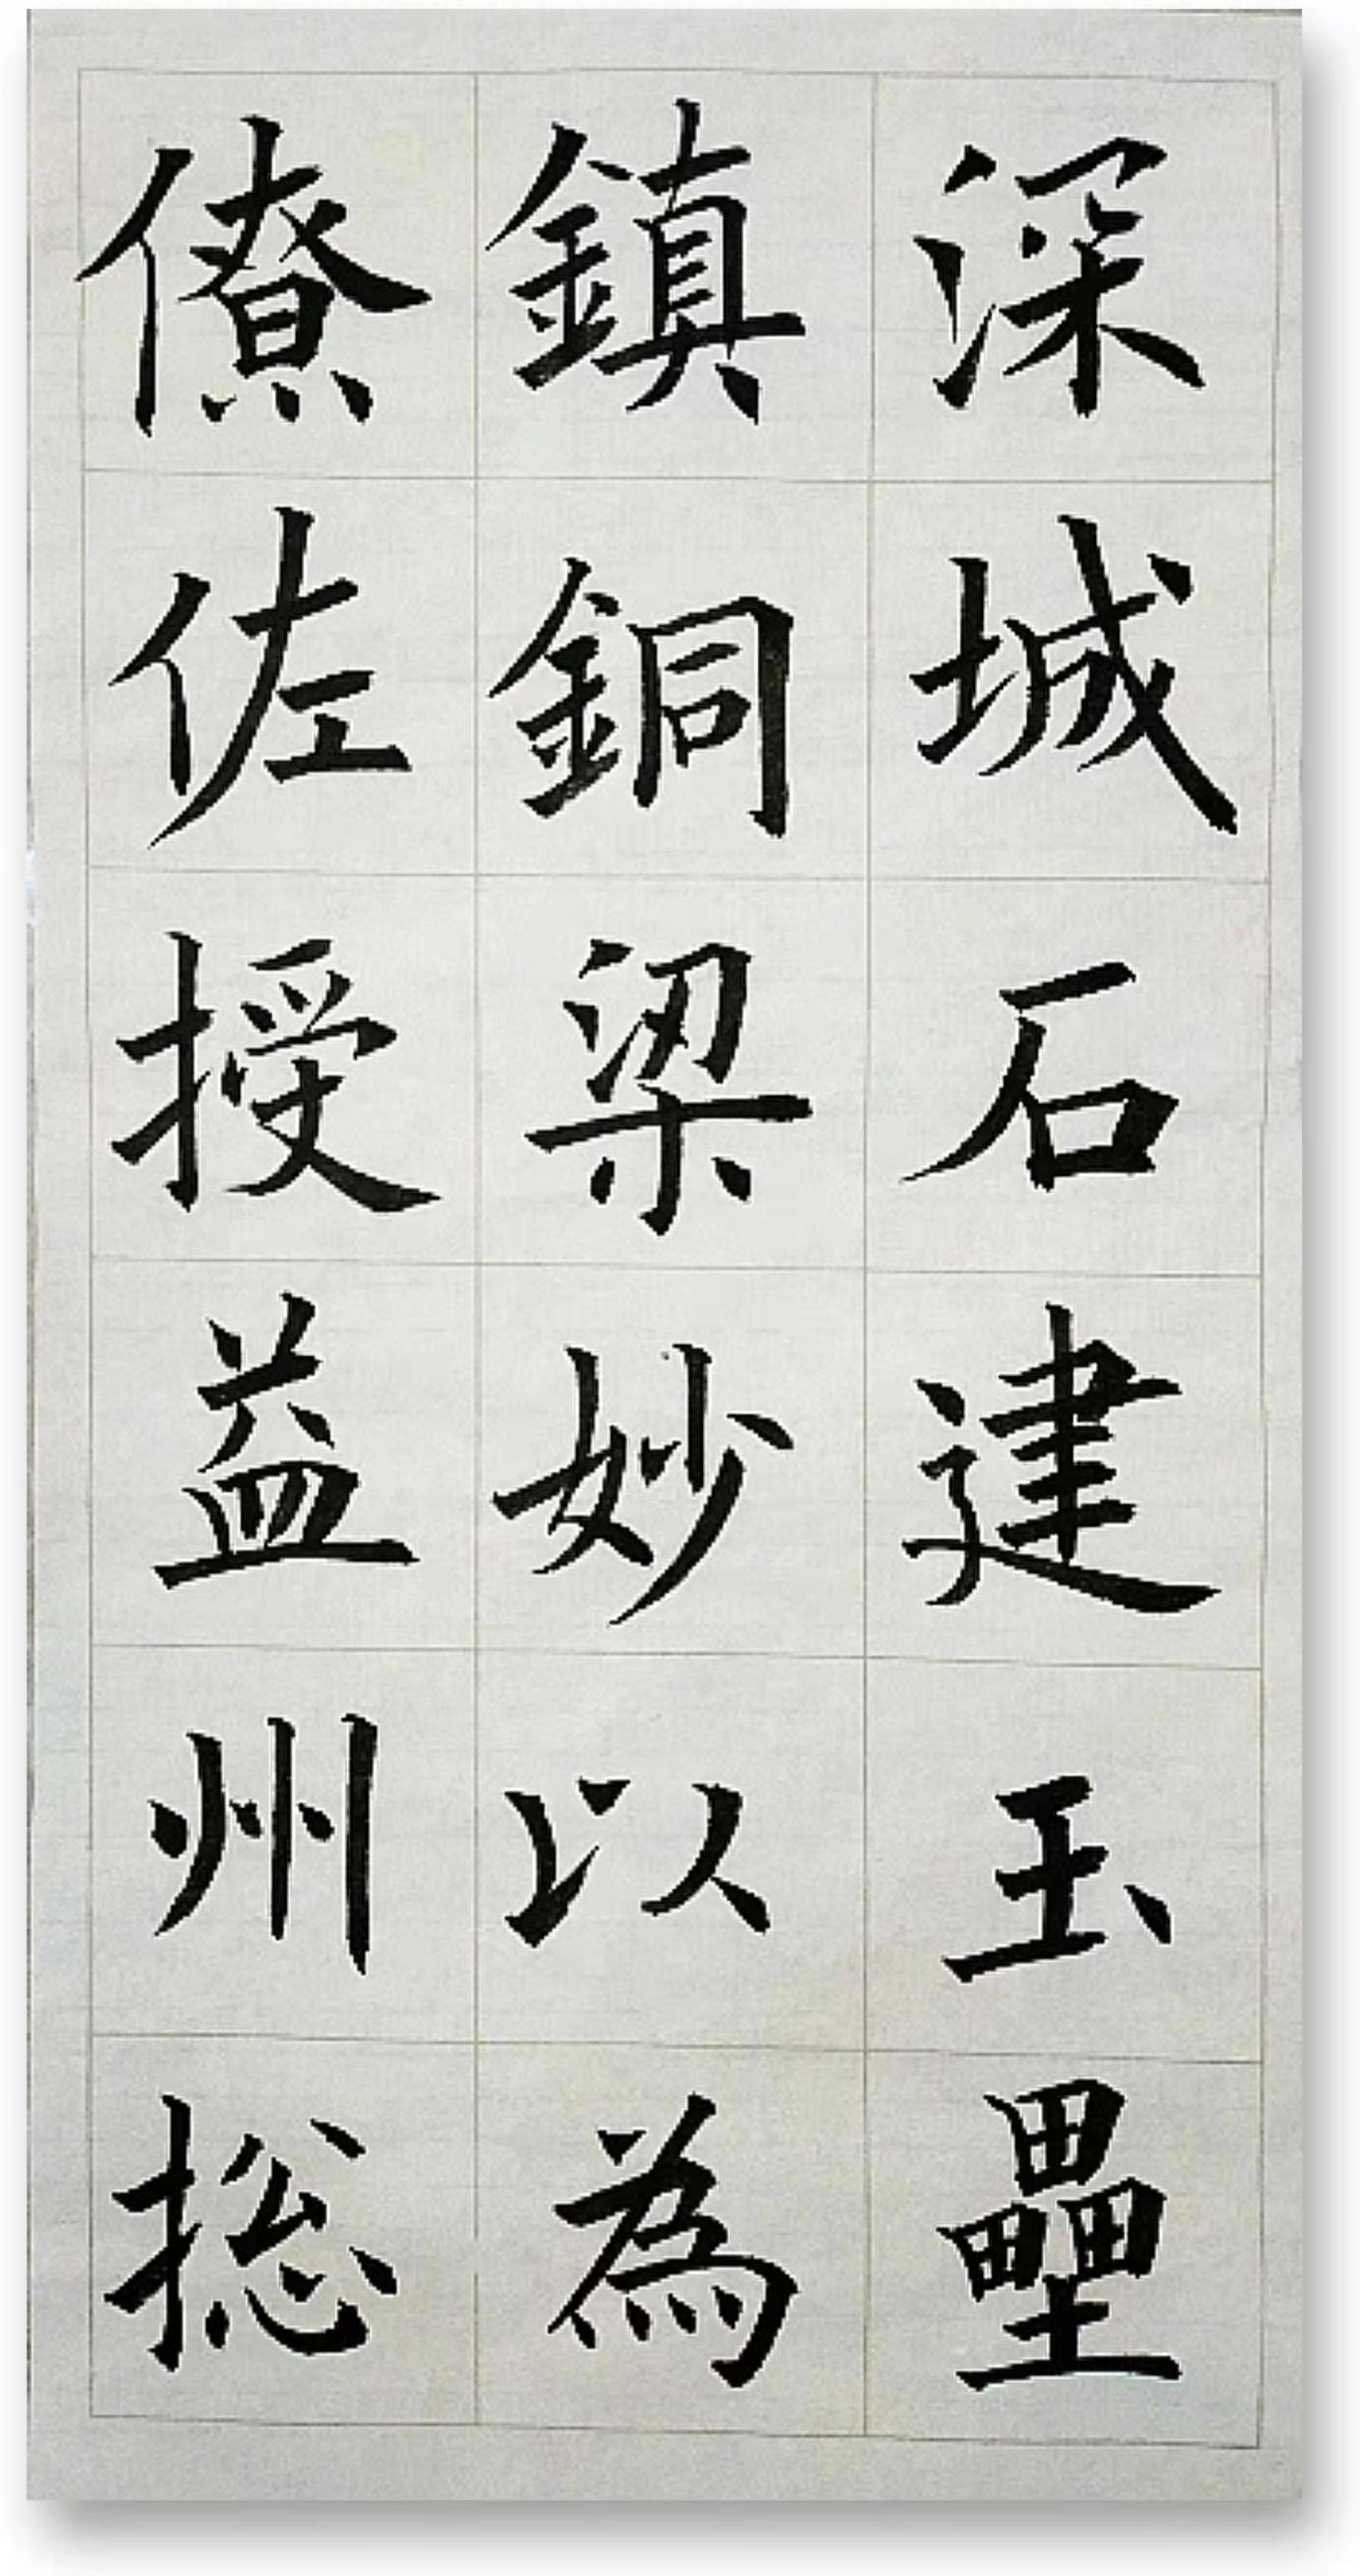 深城石建玉壘
鎮銅梁妙以為
僚佐授益州捴